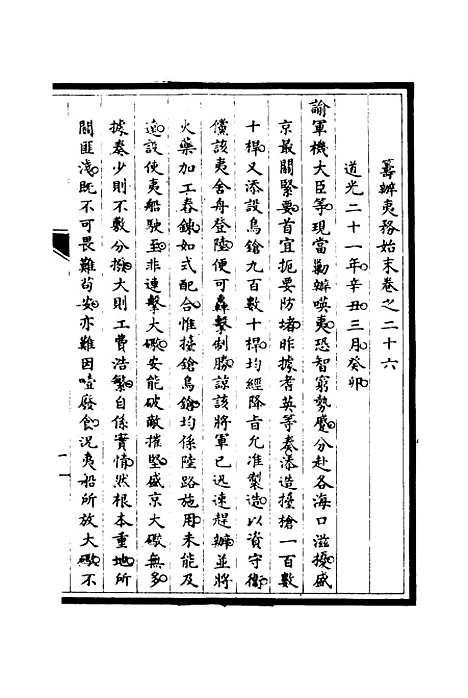 籌辦夷務始末卷之二十六
道光二十一年辛丑三月癸卯
諭軍機大臣等現當勦辦𠸄夷恐智窮勢蹙分赴各海口滋擾盛
京最關緊要首宜扼要防堵昨據耆英等奏添造擡槍一百數
十桿又添設鳥鎗九百數十桿均經降旨允准製造以資守衞
儻該夷舍舟登陸便可轟擊制勝諒該將軍已迅速趕辦並將
火藥加工舂鍊如式配合惟擡鎗鳥鎗均係陸路施用未能及
遠設使夷船駛至非連擊大礮安能破敵摧堅盛京大礮無多
據奏少則不敷分撥大則工費浩繁自係實情然根本重地所
關匪淺既不可畏難苟安亦難因噎廢食況夷船所放大礮不
一